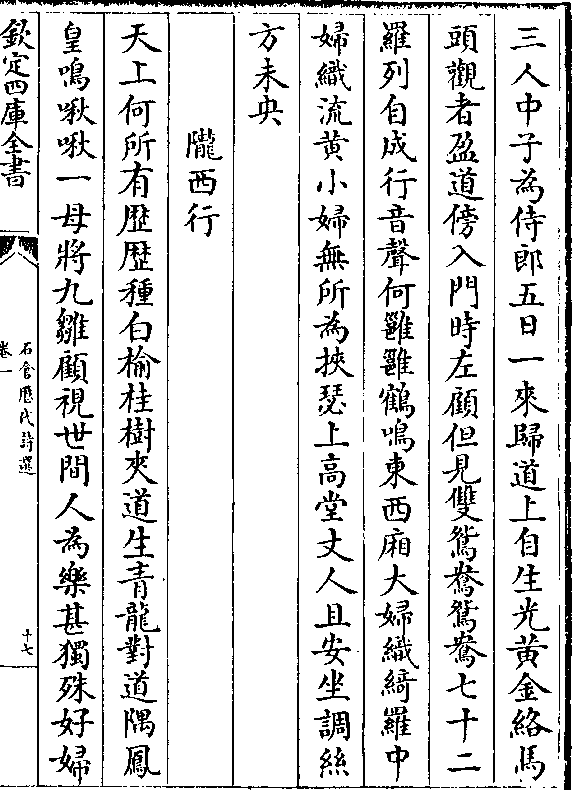 三人中子為侍郎五日一來歸道上自生光黄金絡馬
頭觀者盈道傍入門時左顧但見雙鴛鴦鴛鴦七十二
羅列自成行音聲何雝雝鶴鳴東西廂大婦織綺羅中
婦織流黄小婦無所為挾瑟上高堂丈人且安坐調絲
方未央
隴西行
天上何所有歴歴種白榆桂樹夾道生青龍對道隅鳳
皇鳴啾啾一母將九雛顧視世間人為樂甚獨殊好婦
欽定四庫全書
石倉歴代詩選
卷一
十七